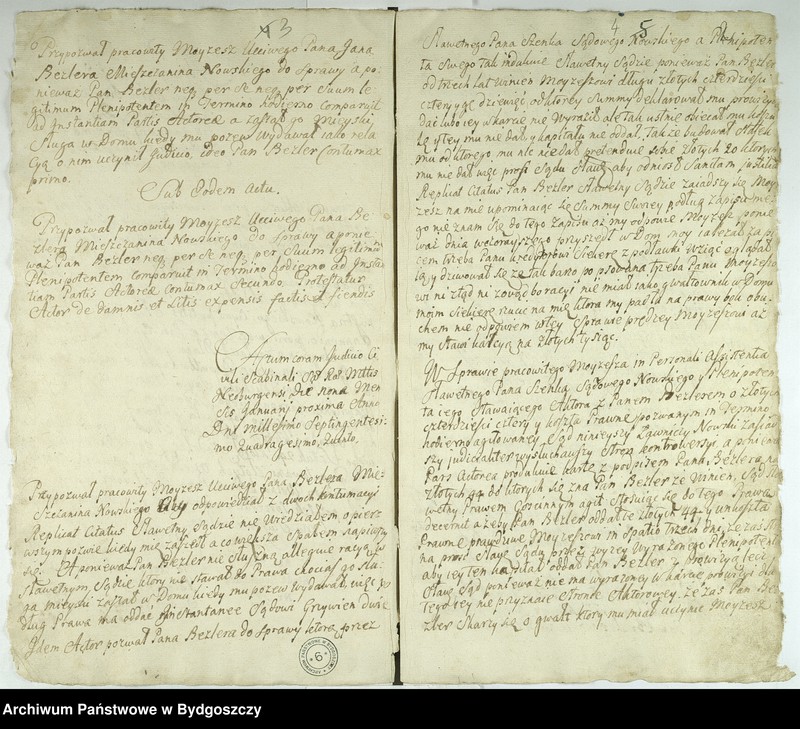 3
Przypozwał pracowity Moyzesz Uczciwego Pana Jana
Bezlera Mieszczanina Nowskiego do Sprawy a po-
nieważ Pan Bezler neq. per se neq. per Suum le-
gitimum Plenipotentem in Termino hodierno comparuit
ad Instantiam Partis Actoreæ a zastał go Mieyski
Sługa w Domu kiedy mu pozew Wydawał iako rela-
cyą o nim uczynił Judicio, ideo Pan Bezler Contumax
primo.
Sub Eodem Actu.
Przypozwał pracowity Moyzesz Uczciwego Pana Be
zlera Mieszczanina Nowskiego do Sprawy a ponie
waż Pan Bezler neq. per se neq. per Suum legitimum
Plenipotentem comparuit in Termino hodierno ad Instan
tiam Partis Actoreæ contumax Secundo. Protestatur
Actor de damnis et Litis expensis factis et fiendis
Actum coram Judicio Ci
vili Scabinali
Neoburgensi Die nona Men
sis Januarij proxima Anno
Dni Millesimo Septingentesi-
mo Quadragesimo, Quinto.
Przypozwał pracowity Moyzesz Uczciwego Pana Bezlera Mie-
szczanina Nowskiego Aby odpowiedział z dwoch kontumacyi
Replicat Citatus Sławetny Sądzie nie Wiedziałem o pierz
wszym pozwie kiedy mię zaszedł a co większa Spałem napiwszy
się. Et ponieważ Pan Bezler nie Słuszną allegnie racyą w
Sławetnym Sądzie który nie Stawał do Prawa chociaż go Słu-
ga mieyski zastał w Domu kiedy mu pozew wydawał, więc po
dług Prawa ma oddać instantanee Sądowi Grzywien dwie
Idem Actor pozwał Pana Bezlera do Sprawy ktorą przez
6
4 5
Sławetnego Pana Szenka Sądowego Nowskiego a Plenipoten
ta Swego tak indukuie Sławetny Sądzie ponieważ Pan Bezler
od trzech lat winien Moyzeszowi długu złotych czterdzieści
cztery y gr dziewięć, od ktorey Summy deklarował mu prowizyą
dać lubo iey w karcie nie Wyraził ale tak ustnie obiecał mu
tey mu nie dał y kapitału nie oddał, Także budował
mu od ktorego mu nic nie dał prætenduie sobie złotych 20 ktorych
mu nie dał więc prosi Sądu Sław: aby odniosł Sanctam justitiam
Replicat Citatus Pan Bezler Sławetny Sądzie zaiadszy się Moy
zesz na mię upominaiąc się Summy Swoiey podług zapisu me-
go nie znam się do tego Zapisu aż my odpowie Moyzesz, ponie
waż dnia wczorayszego przyszedł w Dom moy
cem trzeba Panu kredytorowi Siekierę z podławki wziąć oglądał
ią y dziwował się ze tak bardo popsowana trzeba Panu Moyzeszo
wi ni ztąd ni zowąd bo racyi nie miał iako gwałtownik w Domu
moim Siekierę rzucić na mię ktora my padła na prawy bok obu-
chem nie odpowiem w tey Sprawie prędzey Moyzeszowi aż
my Stawi kaucyą na złotych tysiąc.
W Sprawie pracowitego Moyzesza in Personali Assistentia
Sławetnego Pana Szenka Sądowego Nowskiego y Plenipoten
ta iego Stawaiącego Aktora z Panem Bezlerem o złotych
czterdzieści cztery y koszta Prawne pozwanym in Termino
hodierno agitowaney Sąd ninieyszy Ławniczy Nowski zasiad
szy judicialiter wysłuchawszy Stron kontrowersye a ponieważ
Pars Actorea produkuie kartę z podpisem Pana Bezlera na
złotych 44 od ktorych się zna Pan Bezler że Winien, Sąd Sła
wetny Prawem Gościnnym agit Stosuiąc się do tego Prawa
decernit ażeby Pan Bezler oddał te złotych 44 y
Prawne prawdziwe Moyzeszowi in Spatio trzech dni, że zaś Stro
na prosi Sławę Sądu przez wyżey Wyrażonego Plenipotenta
aby iey ten kapitał oddał Pan Bezler z prowizyą tedy
Sławę Sąd ponieważ nie ma wyrażoney w karcie prowizyi dla
tego iey nie przyznaie Stronie Aktorowey, że zaś Pan Be
zler Skarży się o gwałt ktory mu miał uczynić Moyzesz
Archiwum Państwowe w Bydgoszczy